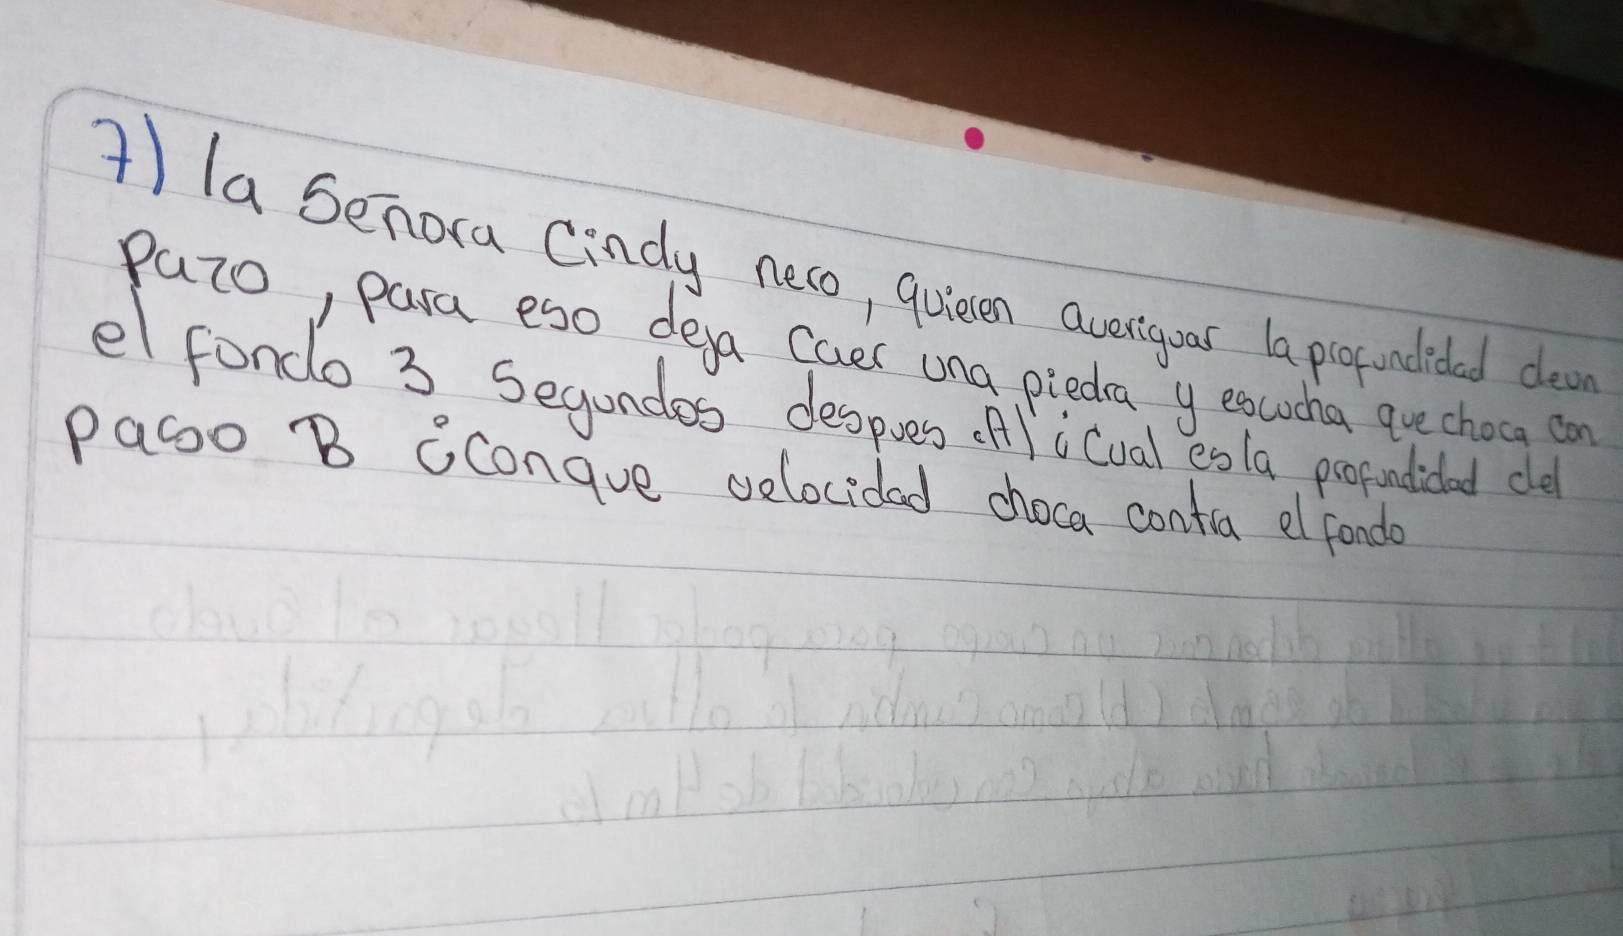 7) la Señora Cindy nero, quieren averiguar la profundidad deun
Pazo, para eso deja caer una piedra y escucha que choca con
el fondo 3 Segundos despues. A) ¿Cual es la profundidad del
Paso B ¿Conque velocidad choca contra el fondo